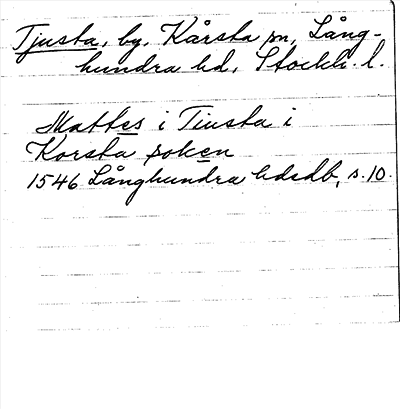 Tjusta, by, Kårsta sn, Lång-
hundra hd, Stockh. l.
Mattes i Tiusta i
Korsta soken
1546 Långhundra hdsdb, s. 10.